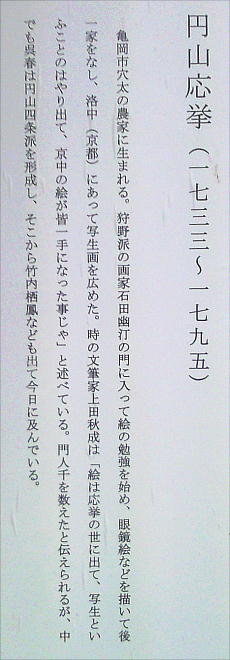 円山応挙（一七三三～一七九五）
亀岡市穴太の農家に生まれる。狩野派の画家石田幽汀の門に入って絵の勉強を始め、眼鏡絵などを描いて後
一家をなし、洛中（京都）にあって写生画を広めた。時の文筆家上田秋成は「絵は応挙の世に出て、写生とい
ふことのはやり出て、京中の絵が皆一手になった事じゃ」と述べている。門人千を数えたと伝えられるが、中
でも呉春は円山四条派を形成し、そこから竹内栖鳳なども出て今日に及んでいる。